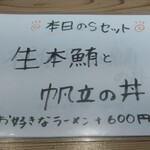 ※本日のSセット※
生本鮪と
帆立の丼
お好きなラーメン+600円